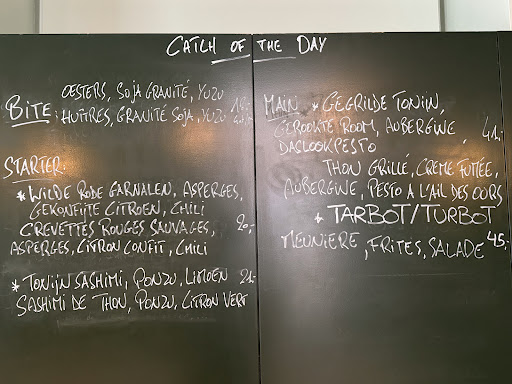 CATCH OF THE DAY
BITE:
OESTERS, SOJA GRANITÉ, YUZU
HUÎTRES, GRANITÉ SOJA, YUZU
STARTER
* WILDE RODE GARNALEN, ASPERGES,
GEKONFIJTE CITROEN, CHILI
CREVETTES ROUGES SAUVAGES, 20,-
ASPERGES, CITRON CONFIT, CHILI
* TONIJN SASHIMI, PONZU, LIMOEN 21,-
SASHIMI DE THON, PONZU, CITRON VERT
MAIN * GEGRILDE TONIJN,
GEROOKTE ROOM, AUBERGINE, 41,-
DASLOOKPESTO
THON GRILLÉ, CRÈME FUMÉE,
AUBERGINE, PESTO A L'AIL DES OURS
* TARBOT/TURBOT
MEUNIÈRE, FRITES, SALADE 45,-